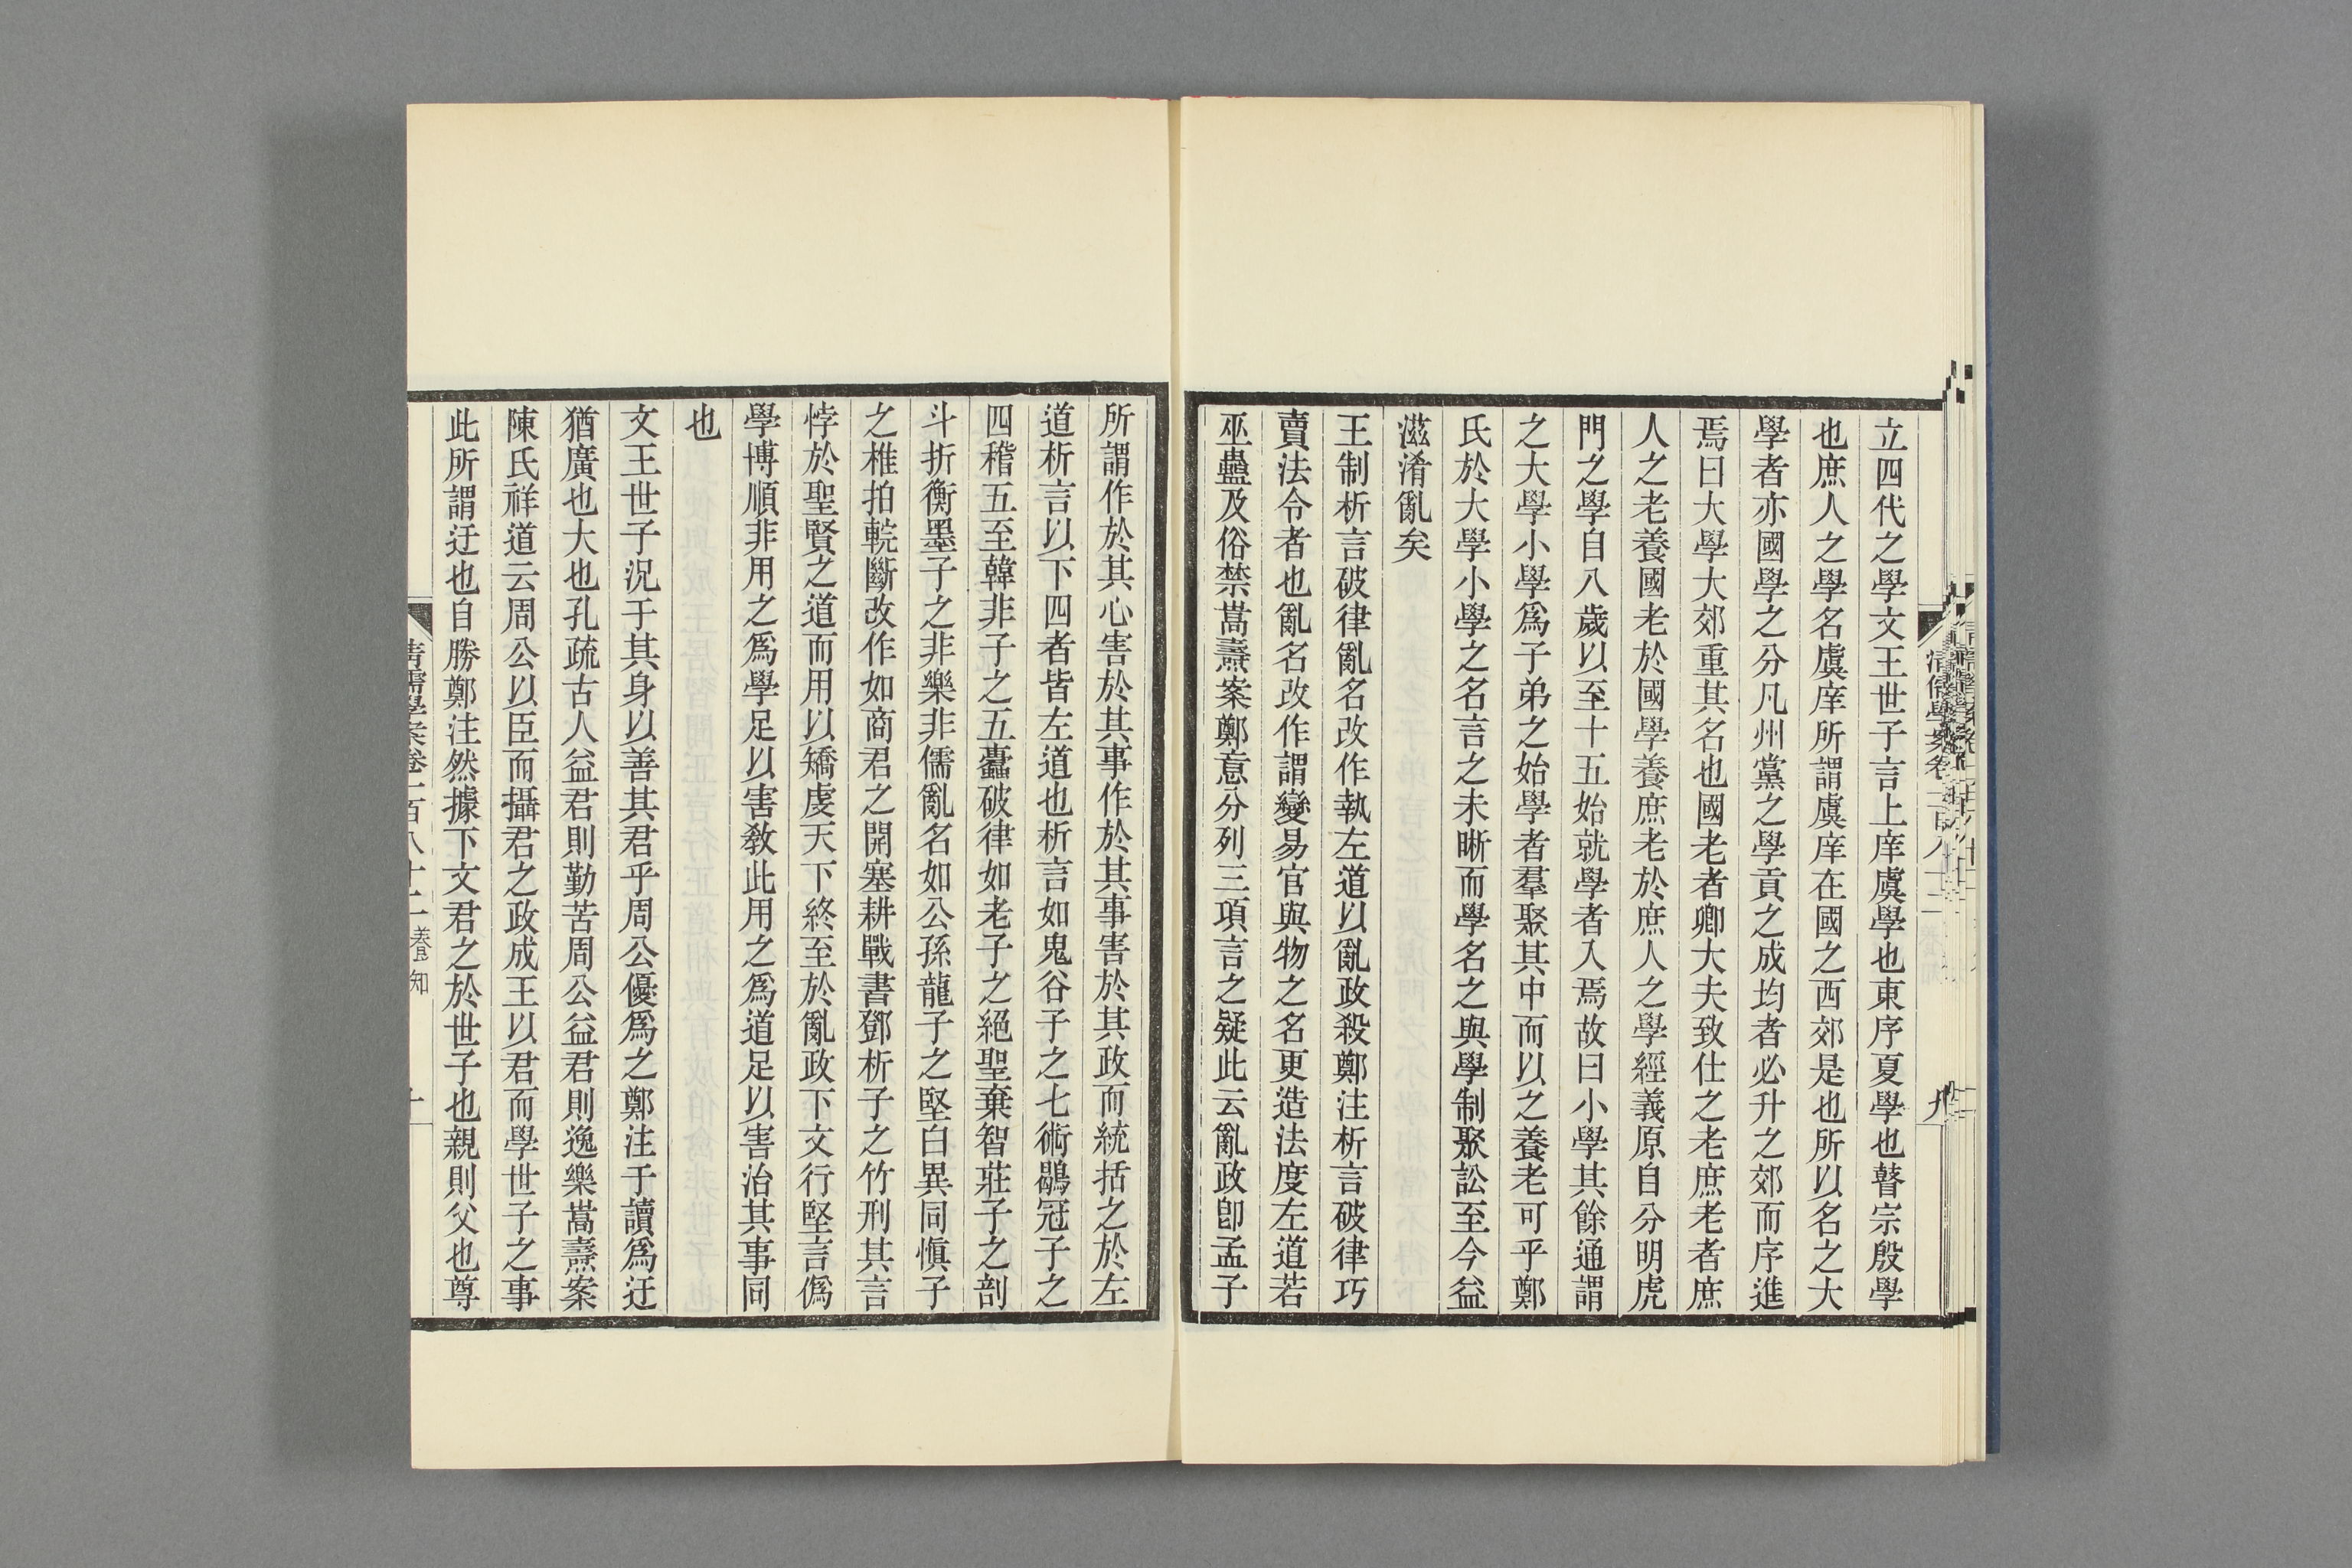 立四代之學文王世子言上庠虞學也東序夏學也瞽宗殷學
也庶人之學名虞庠所謂虞庠在國之西郊是也所以名之大
學者亦國學之分凡州黨之學貢之成均者必升之郊而序進
焉曰大學大郊重其名也國老者卿大夫致仕之老庶老者庶
人之老養國老於國學養庶老於庶人之學經義原自分明虎
門之學自八歲以至十五始就學者入焉故曰小學其餘通謂
之大學小學爲子弟之始學者羣聚其中而以之養老可乎鄭
氏於大學小學之名言之未晰而學名之與學制聚訟至今益
滋淆亂矣
王制析言破律亂名改作執左道以亂政殺鄭注析言破律巧
賣法令者也亂名改作謂變易官與物之名更造法度左道若
巫蠱及俗禁嵩燾案鄭意分列三項言之疑此云亂政卽孟子
所謂作於其心害於其事作於其事害於其政而統括之於左
道析言以下四者皆左道也析言如鬼谷子之七術鶡冠子之
四稽五至韓非子之五蠹破律如老子之絕聖棄智莊子之剖
斗折衡墨子之非樂非儒亂名如公孫龍子之堅白異同愼子
之椎拍輐斷改作如商君之開塞耕戰書鄧析子之竹刑其言
悖於聖賢之道而用以矯虔天下終至於亂政下文行堅言僞
學博順非用之爲學足以害敎此用之爲道足以害治其事同
也
文王世子況于其身以善其君乎周公優爲之鄭注于讀爲迂
猶廣也大也孔疏古人益君則勤苦周公益君則逸樂嵩燾案
陳氏祥道云周公以臣而攝君之政成王以君而學世子之事
此所謂迂也自勝鄭注然據下文君之於世子也親則父也尊
清儒學案卷一百八十二 養知